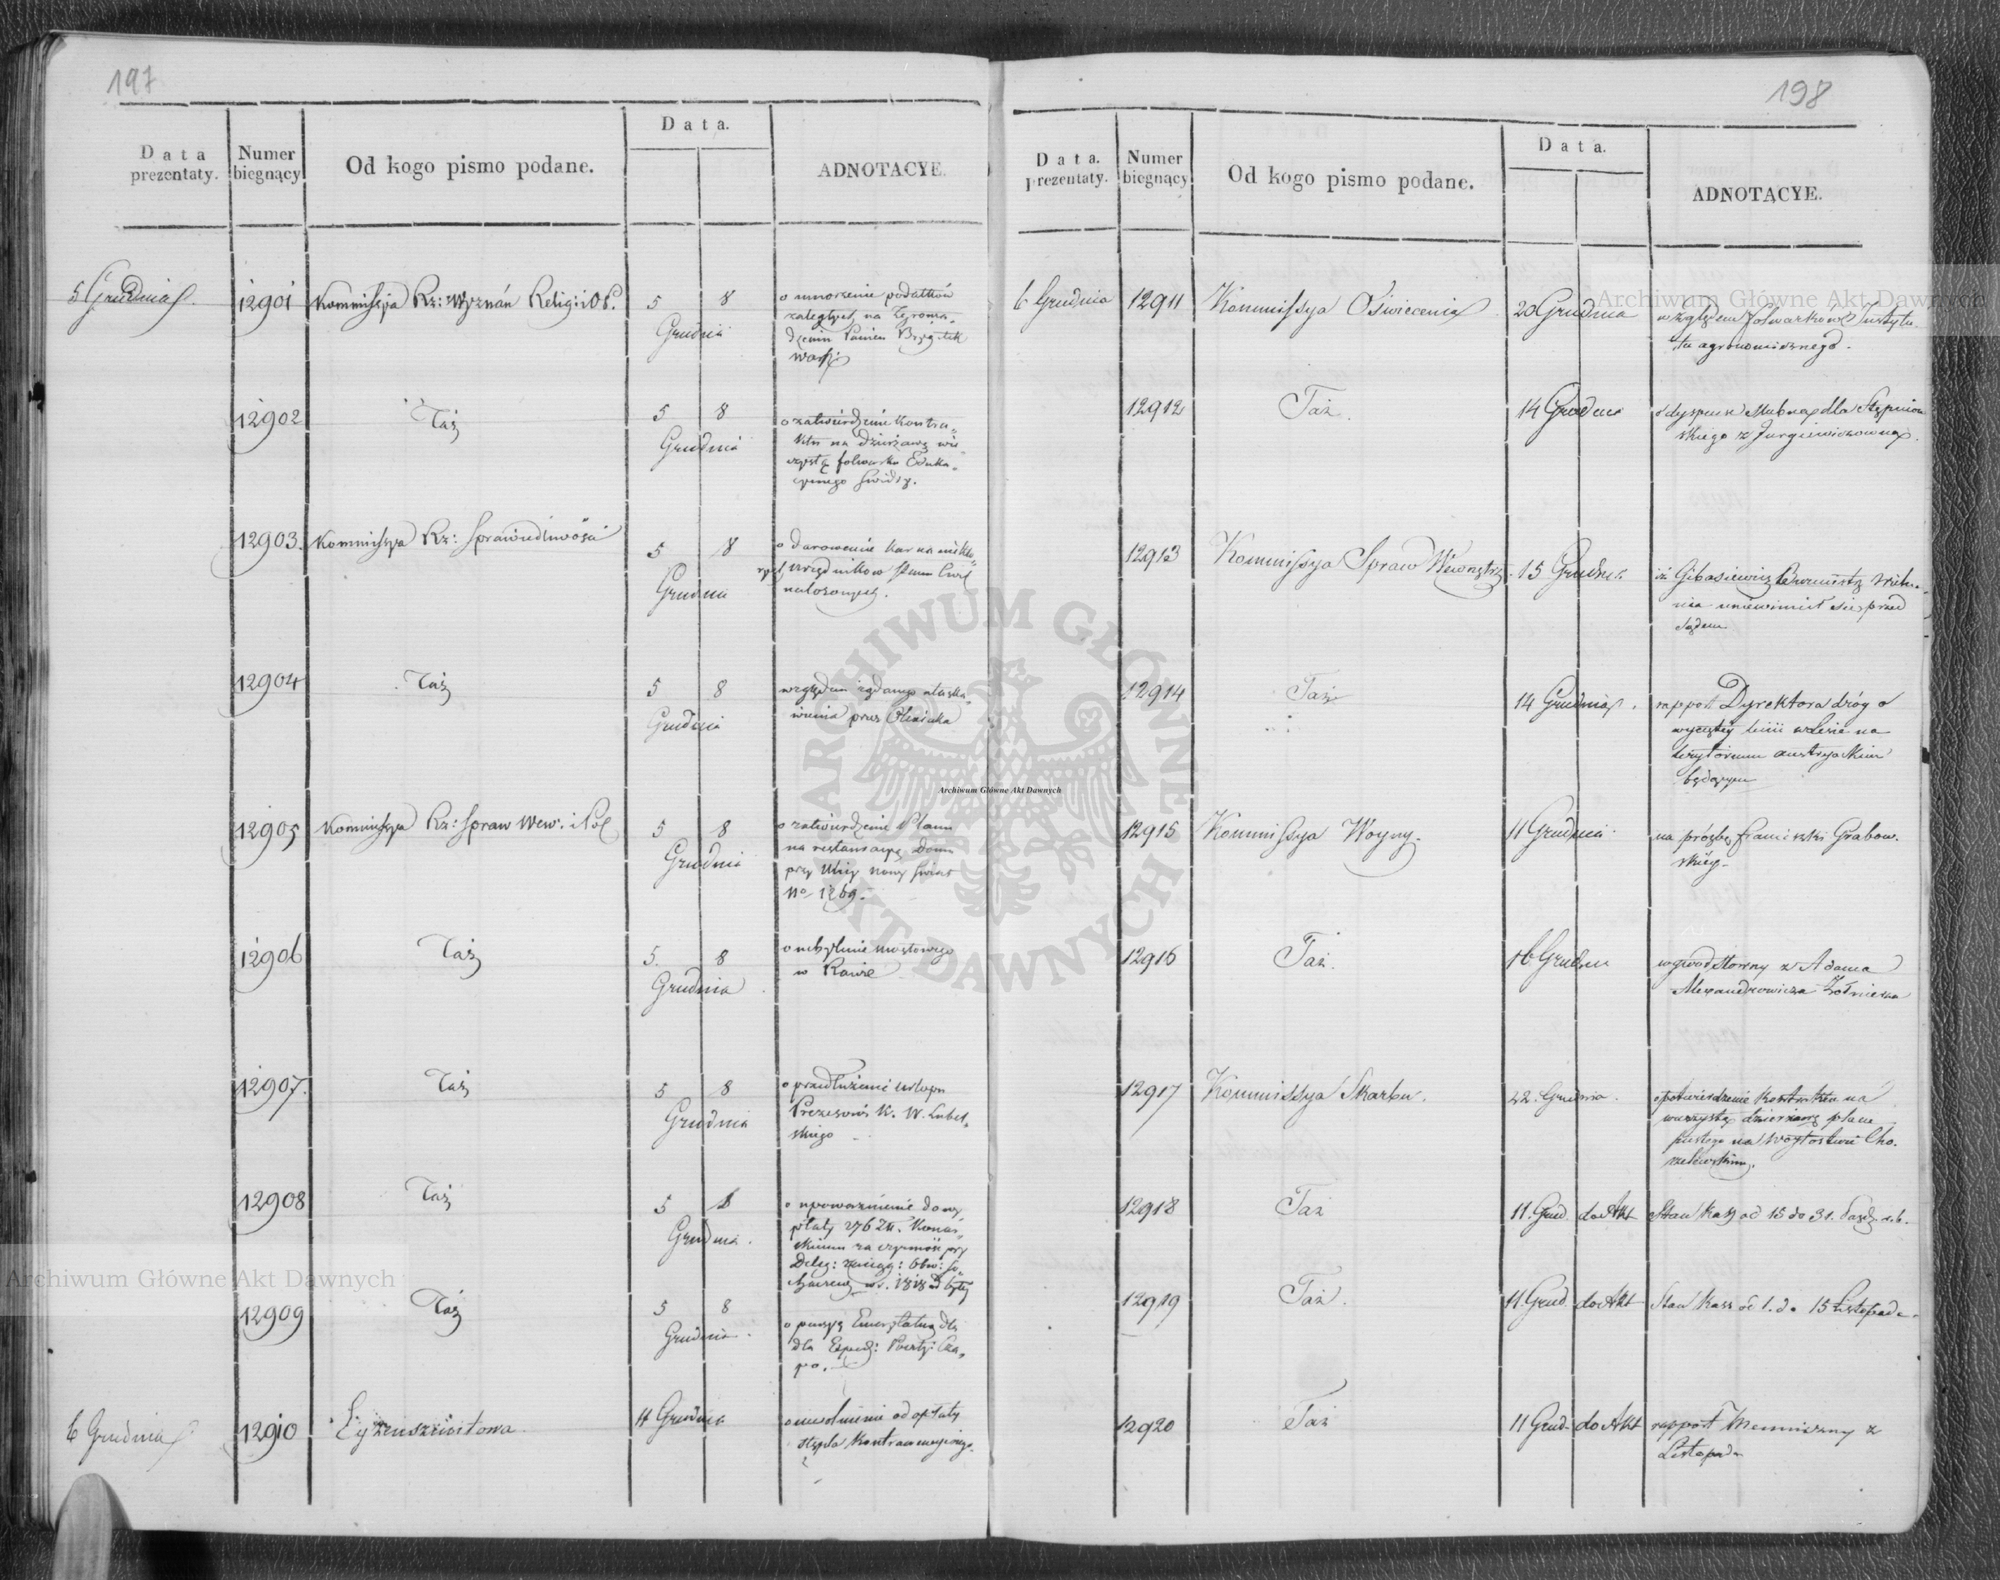 197
Data prezentaty.
Numer biegnący
Od kogo pismo podane.
Data.
ADNOTACYE.
5 Grudnia
12901
Kommissya Rz: Wyznań Relig: i OP.
5 8
Grudnia
o umorzenie podatków
zaległych na Zgroma-
dzeniu Panien Brygitek
Warsz:
12902
Taż
5 8
Grudnia
o zatwierdzenie kontra-
ktu na dzierżawę wie-
czystą folwarku Eduka-
cyjnego
12903.
Kommissya Rz: Sprawiedliwości
5 8
Grudnia
o darowanie kar na niektó-
rych urzędników stanu Cywil
nałożonych.
12904
Taż
5 8
Grudnia
względem żądanego ułaska-
wienia przez
12905
Kommissya Rz: Spraw Wew: i Pol
5 8
Grudnia
o zatwierdzenie Planu
na restauracyą Domu
przy Ulicy nowy świat
No 1269.
12906
Taż
5. 8
Grudnia
o uchylenie mostowego
w Rawie
12907.
Taż
5 8
Grudnia
o przedłużenie urlopu
Prezesowi K. W. Lubel-
skiego
12908
Taż
5 8
Grudnia.
o upoważnienie do wy-
płaty
skiemu za czynność przy
Deleg: zaciąg: Obw: So-
chaczew w r. 1818 odbytej
12909
Taż
5 8
Grudnia.
o pensyą Emerytalną dla
dla Exped: Poczty:
6 Grudnia
12910
11 Grudnia
o uwolnienie od opłaty
stępla
198
Data. prezentaty.
Numer biegnący
Od kogo pismo podane.
Data.
ADNOTACYE.
6 Grudnia
12911
Kommissya Oświecenia
20 Grudnia
względem folwarków Instytu-
tu agronomicznego.
12912
Taż.
14 Grudnia
o dyspensę ślubną dla Stępniow-
skiego z
12913
Kommissya Spraw Wewnętrz.
15 Grudnia
iż Gibasiewicz Burmistrz
uniewinnił się przed
Sądem
12914
Taż
14 Grudnia.
rapport Dyrektora dróg o
wyciętej linii w lesie na
terytorium austryackim
będącym
12915
Kommissya Woyny.
11 Grudnia.
na prośbę Franciszki Grabow-
skiey
12916
Taż.
16 Grudnia
wywód słowny z Adama
Alexandrowicza Żołnierza
12917
Kommissya Skarbu.
22. Grudnia.
o potwierdzenie kontraktu na
wieczystą dzierżawę placu
pustego na Wóytostwie Cho-
rzelewskim.
12918
Taż
11. Grud.
do Akt
Stan Kass od 15 do 31. Paźdz. r. b.
12919
Taż.
11. Grud.
do Akt
Stan kass od 1. do 15 Listopada.
12920
Taż
11 Grud.
do Akt
rapport Menniczny z
Listopada
Archiwum Główne Akt Dawnych
Archiwum Główne Akt Dawnych
Archiwum Główne Akt Dawnych
ARCHIWUM GŁÓWNE AKT DAWNYCH